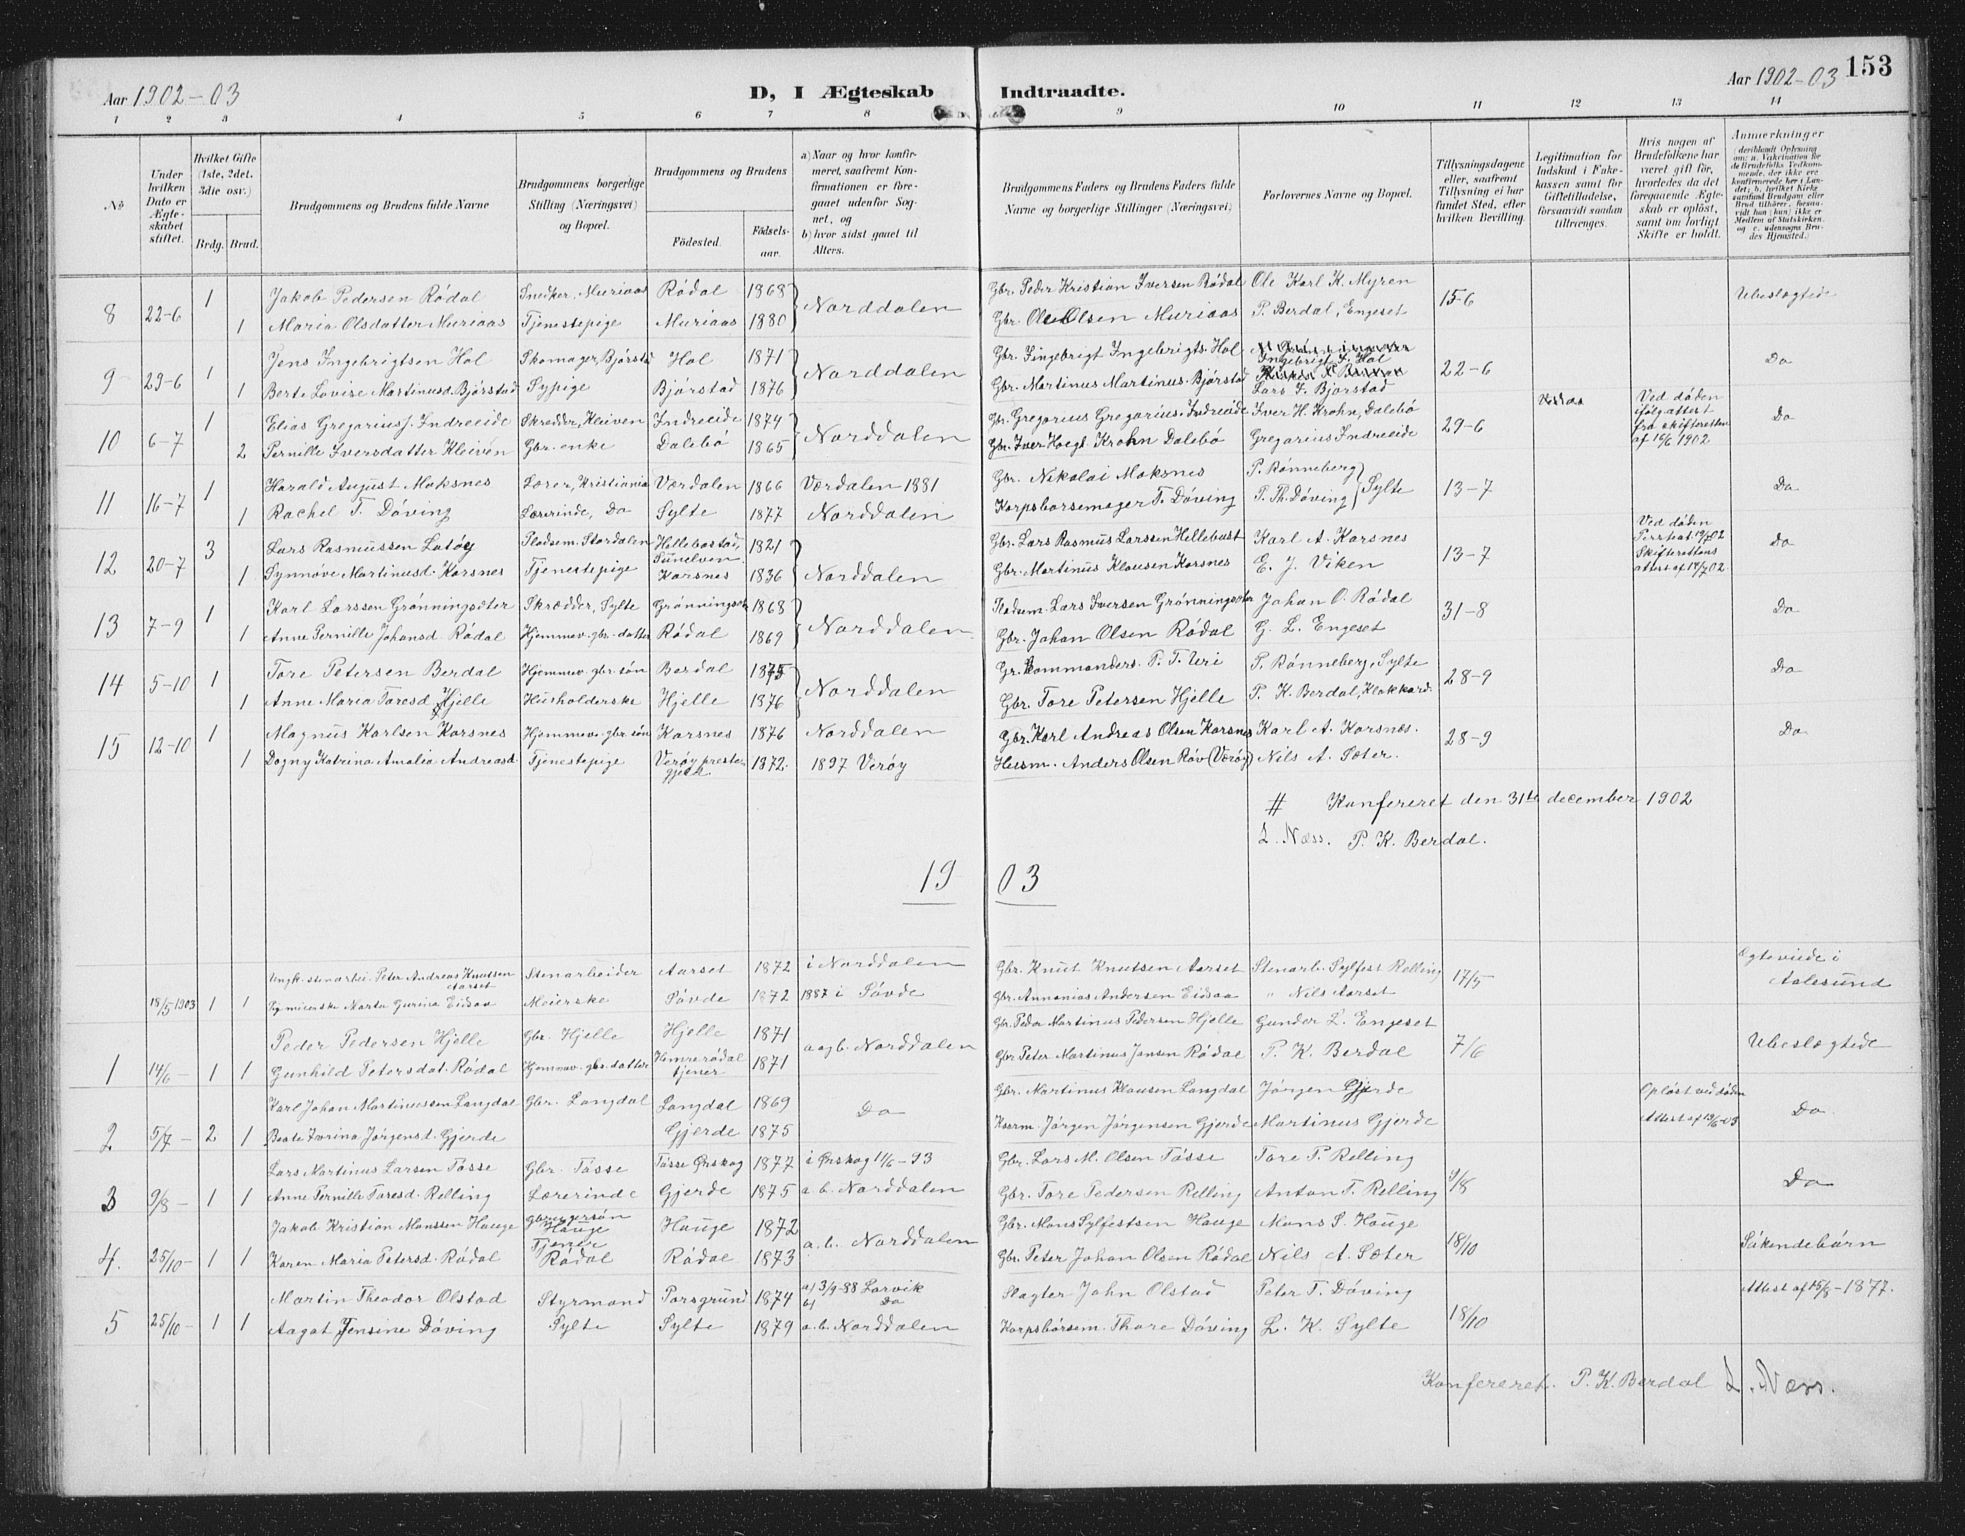 Aar 1902-03 D, I Ægteskab Indtraadte. Aar 1902-03 153
1 2 3 4 5 6 7 8 9 10 11 12 13 14
№
Under hvilken Dato er Ægteskabet stiftet.
Hvilket Gifte (1ste, 2det, 3die osv.)
Brdg. Brud.
Brudgommens og Brudens fulde Navne
Brudgommens borgerlige Stilling (Næringsvei) og Bopæl.
Brudgommens og Brudens
Fødested. Fødselsaar.
a) Naar og hvor konfirmeret, saafremt Konfirmationen er foregaaet udenfor Sognet, og
b) hvor sidst gaaet til Alters.
Brudgommens Faders og Brudens Faders fulde Navne og borgerlige Stillinger (Næringsvei)
Forlovernes Navne og Bopæl.
Tillysningsdagene eller, saafremt Tillysning ei har fundet Sted, efter hvilken Bevilling.
Legitimation for Indskud i Enkekassen samt for Giftetilladelse, forsaavidt saadan tiltrænges.
Hvis nogen af Brudefolkene har været gift før, hvorledes da det foregaaende Ægteskab er opløst, samt om lovligt Skifte er holdt.
Anmerkninger (deriblandt Oplysning om: a. Vakcination for de Brudefolks Vedkommende, der ikke ere konfirmerede her i Landet; b. hvilket Kirkesamfund Brudgom eller Brud tilhører, forsaavidt han (hun) ikke er Medlem af Statskirken, og c. udensogns Brudes Hjemsted.)
8 22-6 1 Jakob Pedersen Rödal Snedker, Muriaas Rödal 1868 Norddalen Gbr. Peder Kristian Iversen Rödal Ole Karl K. Myren 15-6 Ubeslægtede
1 Maria Olsdatter Muriaas Tjenestepige Muriaas 1880 Gbr. Ole Olsen Muriaas P. Berdal, Engeset
9 29-6 1 Jens Ingebrigtsen Hol Skomager, Bjørstad Hol 1871 Norddalen Gbr. Lingebrigt Ingebrigts. Hol Ingebrigt J. Hol 22-6 Do
1 Berte Lovise Martinusd. Bjørstad Sypige Bjørstad 1876 Gbr. Martinus Martinus. Bjørstad Lars J. Bjørstad
10 6-7 1 Elias Gregoriusf. Indreeide Skredder, Kleiven Indreeide 1874 Norddalen Gbr. Gregorius Gregorius. Indreeide Iver H. Krohn, Dalebö 29-6 Ved døden ifølg attest fra skifteretten af 16/6 1902 Do
2 Pernille Iversdatter Kleiven Gbr. enke Dalebö 1865 Gbr. Iver Hoegl. Krohn Dalebö Gregorius Indreeide
11 16-7 1 Harald August Moksnes Lærer, Kristiania Værdalen 1866 Værdalen 1881 Gbr. Nikolai Moksnes P. Rønneberg 13-7 Do
1 Rachel T. Döving Lærerinde, Do Sylte 1877 Norddalen Korpsbörsemager T. Döving P. Th. Döving Sylte
12 20-7 3 Lars Rasmussen Latöy Pladsem. Stordalen Hellebostad, Sunelven 1821 Norddalen Gbr. Lars Rasmus Larssen Hellebust Karl A. Korsnes 13-7 Ved döden Skifterettens attest af 14/7 02 Do
1 Synnöve Martinusd. Korsnes Tjenestepige Korsnes 1836 Gbr. Martinus Klausen Korsnes E. J. Viken
13 7-9 1 Karl Larssen Grønningsæter Skrædder, Sylte Grønningset 1868 Norddalen Pladsem. Lars Iversen Grønningsæter Johan O. Rödal 31-8 Do
1 Anne Pernille Johansd Rödal Hjemmev. gbr. datter Rödal 1869 Gbr. Johan Olsen Rödal G. L. Engeset
14 5-10 1 Tore Petersen Berdal Hjemmev. gbr. søn Berdal 1875 Norddalen P. T. Uri P. Rønneberg, Sylte 28-9 Do
1 Anne Maria Toresd Hjelle Husholderske Hjelle 1876 Gbr. Tore Petersen Hjelle P. K. Berdal, Klokkard.
15 12-10 1 Magnus Karlsen Korsnes Hjemmev. gbr. søn Korsnes 1876 Norddalen Gbr. Karl Andreas Olsen Korsnes Karl A. Korsnes. 28-9 Do
1 Dagny Katrina Amalia Andreasd Tjenestepige Verøy prestegjeld 1872. 1897 Verøy Husm. Anders Olsen Röv (Værøy) Nils A. Sæter.
# Konfereret den 31te december 1902
L. Næss. P. K. Berdal.
19 03
18/5 1903 1 1 Ungk. stenarbei. Peter Andreas Knutsen Aarset Stenarbeider Aarset 1872 i Norddalen Gbr. Knut Knutsen Aarset Stenarb. Sylfest Relling 17/5 Egteviede i Aalesund
Pig meierske Marta Gurina Eidsaa Meierske Søvde 1872 1887 i Søvde Gbr. Annanias Andersen Eidsaa " Nils Aarset
1 14/6 - 1 1 Peder Pedersen Hjelle Gbr. Hjelle Hjelle 1871 a og b. Norddalen Gbr. Peder Martinus Pedersen Hjelle Gunder L. Engeset 7/6 Ubeslægtede
Gunhild Petersdat. Rødal Hjemmev. gbr. datter 1871 Gbr. Peter Martinus Jansen Rødal P. K. Berdal
2 5/7 - 2 1 Karl Johan Martinussen Langdal Gbr. Langdal Langdal 1869 Do Gbr. Martinus Klausen Langdal Jørgen Gjerde Opløst ved døden Attest af 13/6-03 Do
Beate Jørgenst. Gjerde Gjerde 1875 Jørgen Jørgensen Gjerde Martinus Gjerde
3 9/8 - 1 1 Lars Martinus Larsen Tösse Gbr. Tösse Tösse Ørskog 1877 i Ørskog 11/6-93 Gbr. Lars M. Olsen Tösse Tore P. Relling 9/8 Do
Anne Pernille Toresd. Relling Lærerinde Gjerde 1875 a. b. Norddalen Gbr. Tore Pedersen Relling Anton T. Relling
4. 25/10 - 1 1 Jakob Kristian Monssen Hauge Hauge Hauge 1872 a. b. Norddalen Gbr. Mons Sylfestsen Hauge Mons S. Hauge 18/10 Søkendebørn
Karen Maria Petersd. Rødal Tjener Rødal Rødal 1873 Gbr. Peter Johan Olsen Rødal Nils A. Sæter
5 25/10 - 1 1 Martin Theodor Olstad Styrmand Porsgrund 1874 a) 3/9-88 Larvik b) Do Slagter John Olstad Peter T. Döving 18/10 Attest af 15/8-1877.
Aagat Jensine Döving Sylte Sylte 1879 a. b. Norddalen Korpsbörsem. Thore Döving L. K. Sylte
Konfereret. P. K. Berdal L. Næss.